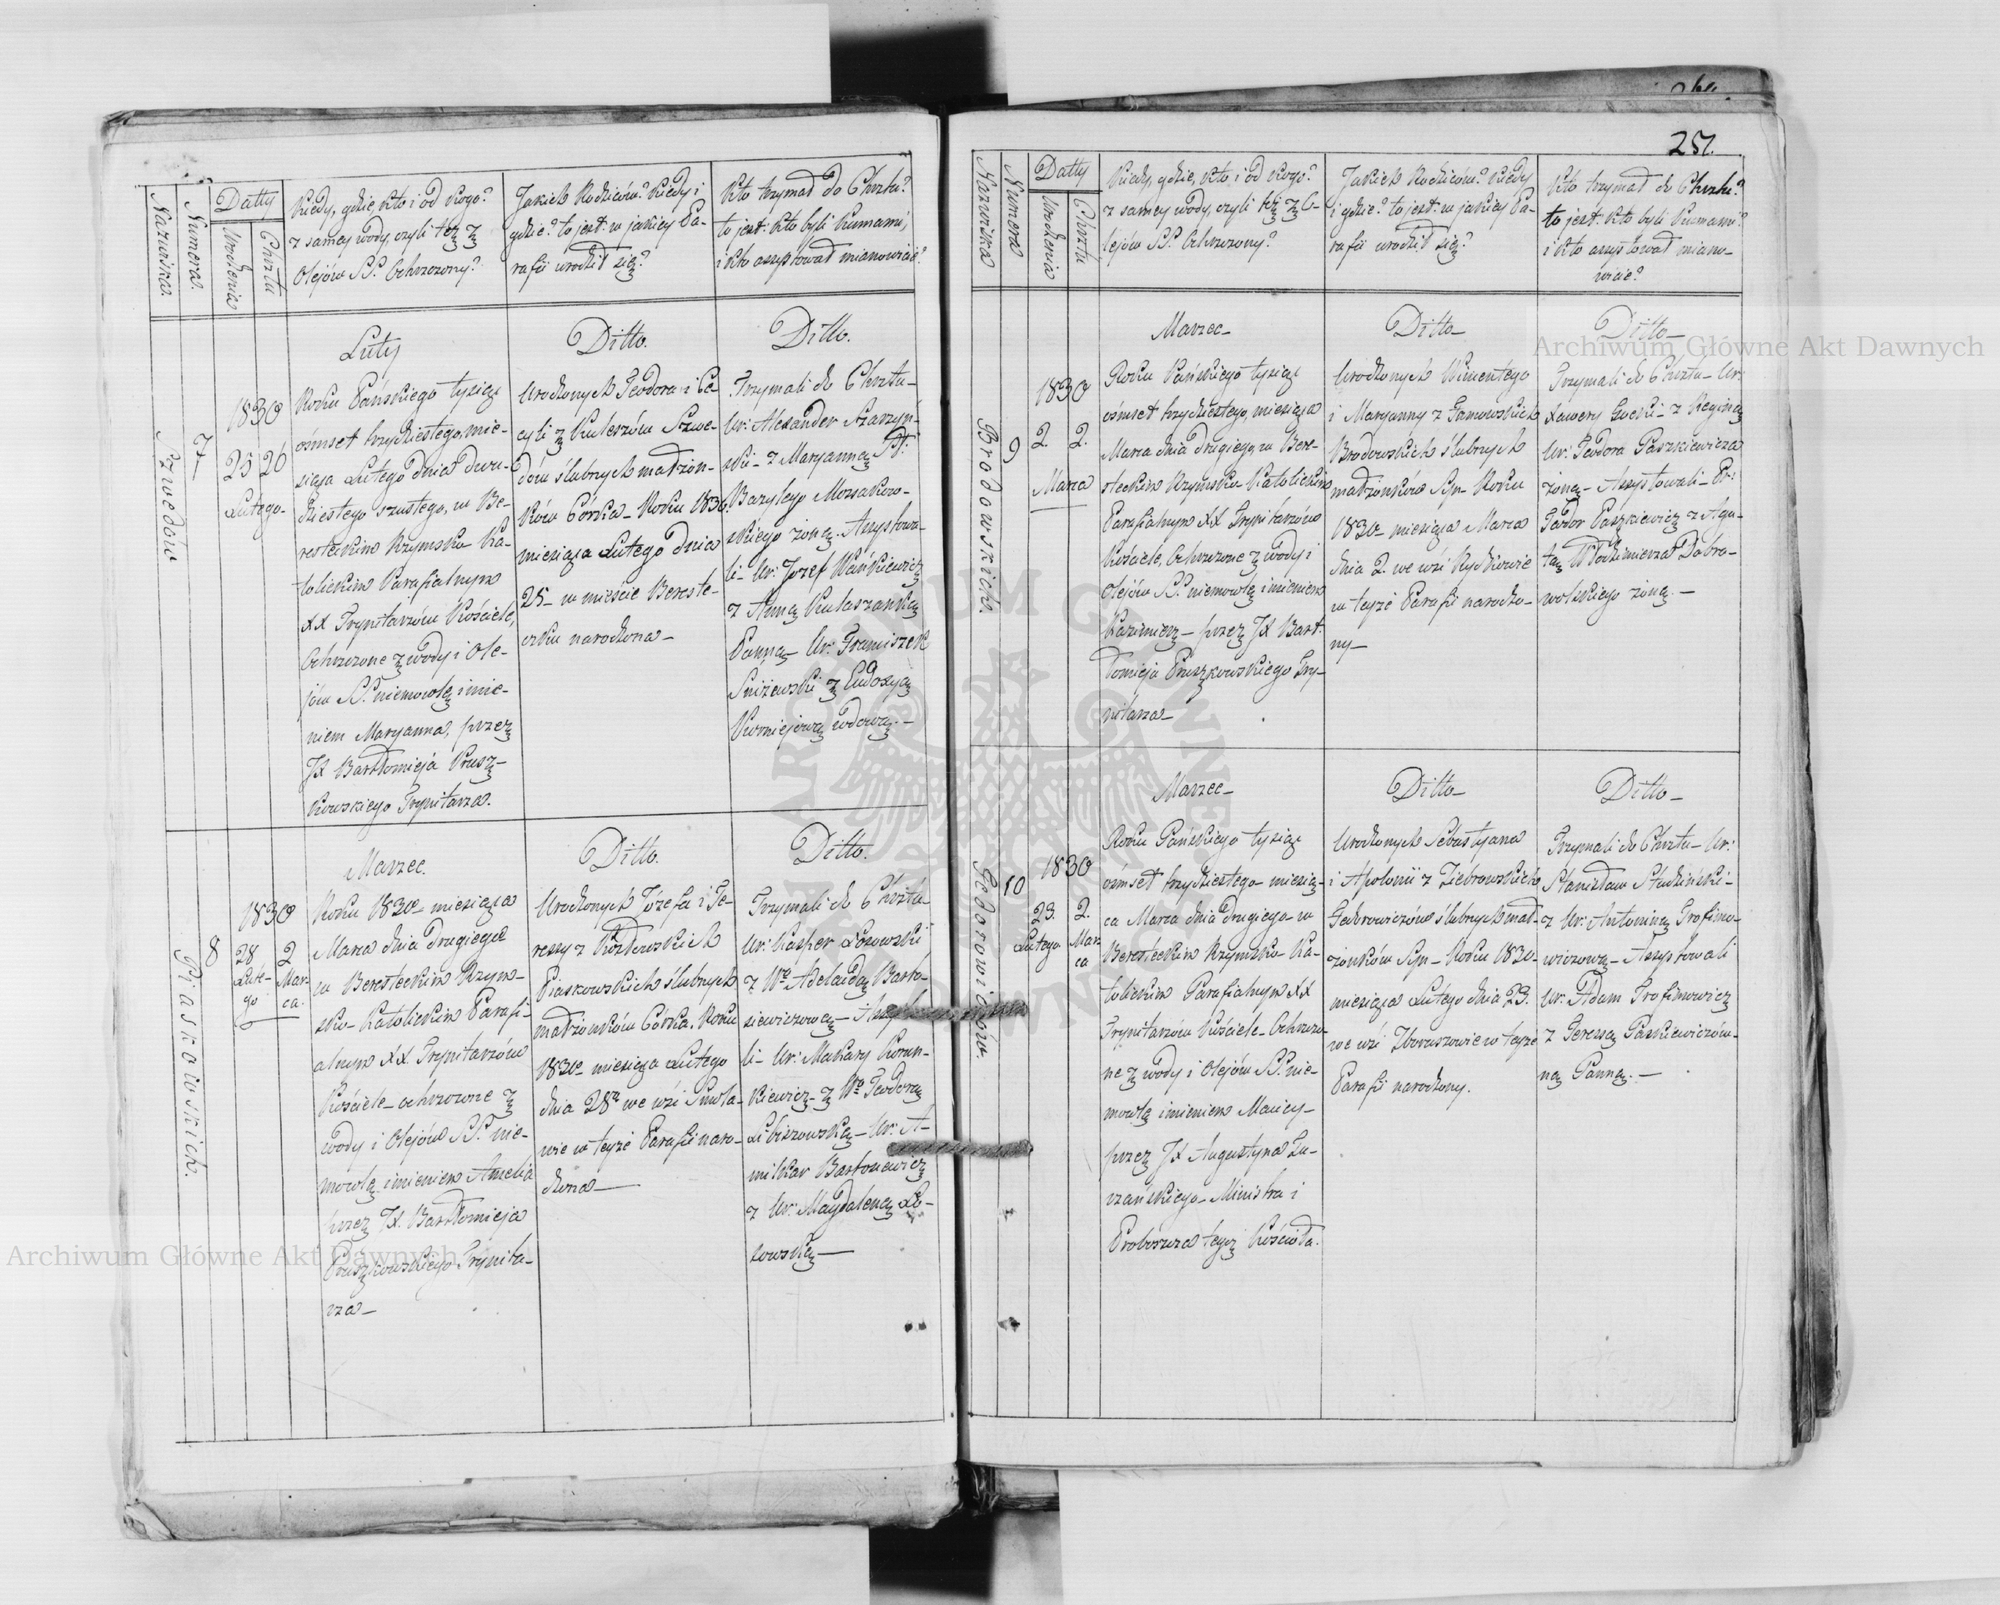 Nazwiska.
Numera.
Datty
Urodzenia
Chrztu
Kiedy, gdzie, kto i od kogo?
z samey wody, czyli też z
Olejów SS. Ochrzczony?
Jakich Rodziców? Kiedy i
gdzie? to jest: w jakiey Pa-
rafii urodził się?
Kto trzymał do Chrztu?
to jest: kto byli Kumami,
i kto assystował mianowicie?
Szwedów
7
1830
25 26
Lutego
Luty
Roku Pańskiego tysiąc
ośmset trzydziestego, mie-
siąca Lutego dnia dwu-
dziestego szustego, w Be-
resteckim Rzymsko Ka-
tolickim Parafialnym
XX Trynitarzów Kościele,
Ochrzczone z wody i Ole-
jów SS. niemowlę imie-
niem Maryanna, przez
JX Bartłomieja Prusz-
kowskiego Trynitarza.
Ditto.
Urodzonych Teodora i Ce-
cyli z Kulerzów Szwe-
dów ślubnych małżon-
ków Córka Roku 1830
miesiąca Lutego dnia
25 w mieście Bereste-
czku narodzona
Ditto.
Trzymali do Chrztu
Ur: Alexander
z Maryanną
Bazylego Morsakow-
skiego żoną. Assystowa-
li Ur: Jozef Wańkiewicz
z Anną Kulaszanką
Panną Ur: Franciszek
Sniżewski z Eudoxyą
Korniejową wdową.
Piaskowskich.
8
1830
28 2
Lute- Mar-
go ca.
Marzec.
Roku 1830 miesiąca
Marca dnia drugiego
w Beresteckim Rzym-
sko Katolickim Parafi-
alnym XX Trynitarzów
Kościele ochrzczone z
wody i Olejów SS. nie-
mowlę imieniem Amelia
przez JX. Bartłomieja
Pruszkowskiego Trynita-
rza
Ditto.
Urodzonych Józefa i Te-
ressy z Kozłowskich
Piaskowskich ślubnych
małżonków Córka. Roku
1830 miesiąca Lutego
dnia 28 we wsi Smola-
wie w teyże Parafii naro-
dzona
Ditto.
Trzymali do Chrztu
Ur: Kasper Łosowski
z Adelaidą Barto-
siewiczową
li Ur: Makary
kiewicz z Teodorą
Libiszowską Ur: A-
milkar Bartosiewicz
z Ur: Magdaleną Ło-
sowską
251.
Nazwiska
Numera
Datty
Urodzenia
Chrztu
Kiedy, gdzie, kto, i od kogo?
z samey wody, czyli też z O-
lejów SS. Ochrzczony?
Jakich Rodziców? Kiedy
i gdzie? to jest: w jakiey Pa-
rafii urodził się?
Kto trzymał do Chrztu?
to jest: kto byli Kumami?
i kto assystował miano-
wicie?
Brodowskich.
9
1830
2. 2.
Marca
Marzec
Roku Pańskiego tysiąc
ośmset trzydziestego, miesiąca
Marca dnia drugiego, w Bere-
steckim Rzymsko Katolickim
Parafialnym XX Trynitarzów
Kościele, Ochrzczone z wody i
Olejów SS. niemowlę imieniem
Kazimierz przez JX Bart-
łomieja Pruszkowskiego Try-
nitarza
Ditto
Urodzonych Wincentego
i Maryanny z Janowskich
Brodowskich ślubnych
małżonków Syn Roku
1830 miesiąca Marca
dnia 2. we wsi Rydkowie
w teyże Parafii narodzo-
ny
Ditto
Trzymali do Chrztu Ur:
Xawery Gocki z Reginą
Ur: Teodora Paszkiewicza
żoną Assystowali Ur:
Teodor Paszkiewicz z Aga-
tą Włodzimierza Dobro-
wolskiego żoną.
10
1830
23. 2.
Lutego Mar
ca
Marzec
Roku Pańskiego tysiąc
ośmset trzydziestego miesią-
ca Marca dnia drugiego w
Beresteckim Rzymsko Ka-
tolickim Parafialnym XX
Trynitarzów Kościele Ochrzczo-
ne z wody i Olejów SS. nie-
mowlę imieniem Maciey
przez JX Augustyna Łu-
Ministra i
Proboszcza tegoż Kościoła.
Ditto
Urodzonych Sebastyana
i Apolonii z Ziebrowskich
Fedorowiczów ślubnych mał-
żonków Syn Roku 1830
miesiąca Lutego dnia 23.
we wsi Zboroszowie w teyże
Parafii narodzony.
Ditto
Trzymali do Chrztu Ur:
Stanisław Studziński
z Ur: Antoniną Trofimo-
wiczową Assystowali
Ur. Adam Trofimowicz
z Teressą Paszkiewiczów-
ną Panną.
Archiwum Główne Akt Dawnych
Archiwum Główne Akt Dawnych